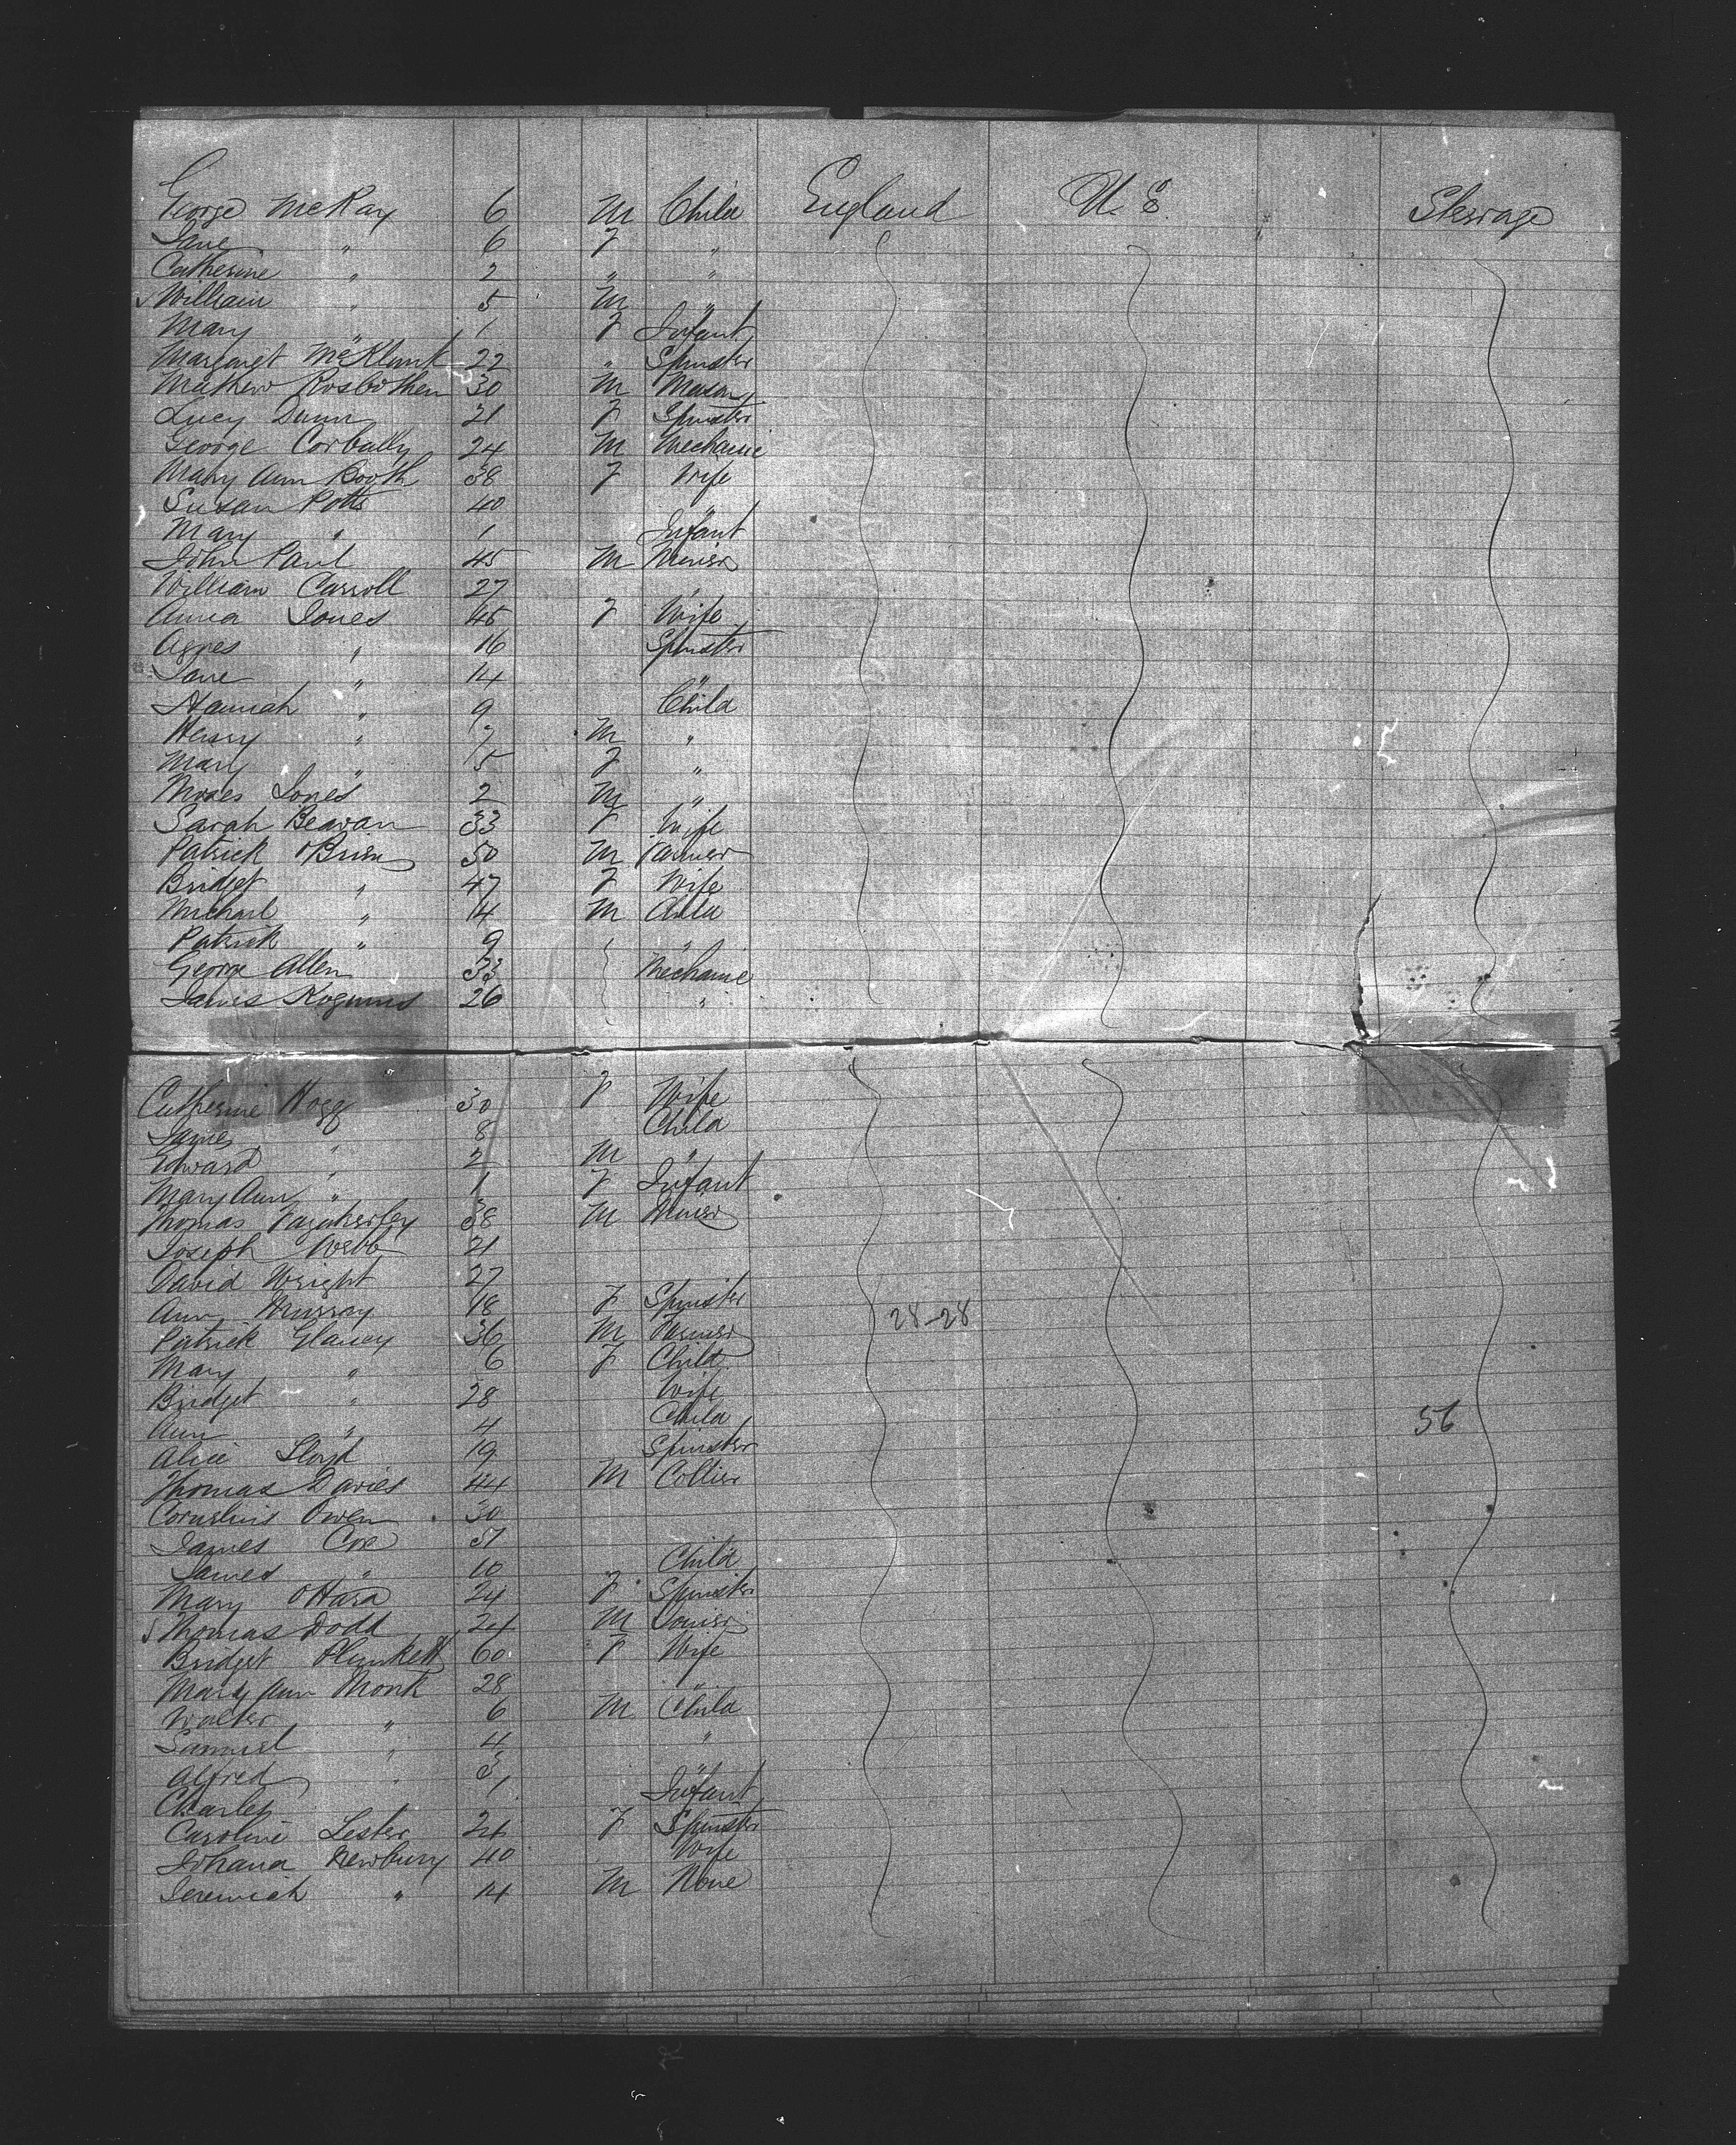 George McKay 6 M Child England U.S. Steerage
Jane " 6 F "
Catherine " 2 " "
William " 5 M "
Mary " 1 F Infant
Margaret McKlunk 22 " Spinster
Mathew Rosbothem 30 M Mason
Lucy Dunn 21 F Spinster
George Corbally 24 M Mechanic
Mary Ann Booth 38 F Wife
Susan Potts 40 "
Mary " 1 Infant
John Paul 45 M Miner
William Carroll 27 "
Anna Jones 45 F Wife
Agnes " 16 Spinster
Jane " 14 "
Hannah " 9 Child
Henry " 7 M "
Mary " 5 F "
Moses Jones 2 M "
Sarah Beavan 33 F Wife
Patrick OBrien 50 M Farmer
Bridget " 47 F Wife
Michael " 14 M Child
Patrick " 9 "
George Allen 33 Mechanic
26 "
Catherine Hogg 30 F Wife
James " 8 Child
Edward " 2 M "
Mary Ann " 1 F Infant
Thomas Fazakerley 38 M Miner
Joseph Webb 21
David Wright 27
Ann Murray 18 F Spinster 28-28
Patrick Glancy 36 M Farmer
Mary " 6 F Child
Bridget " 28 Wife
Ann " 4 Child 56
Alice Lloyd 19 Spinster
Thomas Davies 44 M Collier
Cornelius Owen 30
James Cox 51
James " 10 Child
Mary OHara 24 F Spinster
Thomas Dodd 24 M
Bridget Plunkett 60 F Wife
Mary Ann Monk 28 "
Walter " 6 M Child
Samuel " 4 "
Alfred " 3 "
Charles 1 Infant
Caroline Lester 21 F Spinster
Johana Newbury 40 Wife
Jeremiah " 14 M None